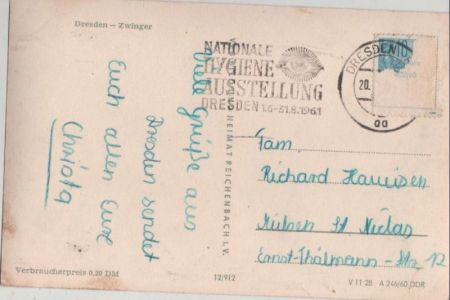 Dresden - Zwinger
NATIONALE
HYGIENE
AUSSTELLUNG
DRESDEN 1.6-31.8.1961
DRESDEN
20.
aa
Viele Grüße aus
Dresden sendet
Euch allen Eure
Christa
HEIMAT REICHENBACH I.V.
Fam.
Richard
Mülsen St. Niclas
Ernst-Thälmann-Str. 12
Verbraucherpreis 0,20 DM
12/912
V 11 28 A 246/60 DDR